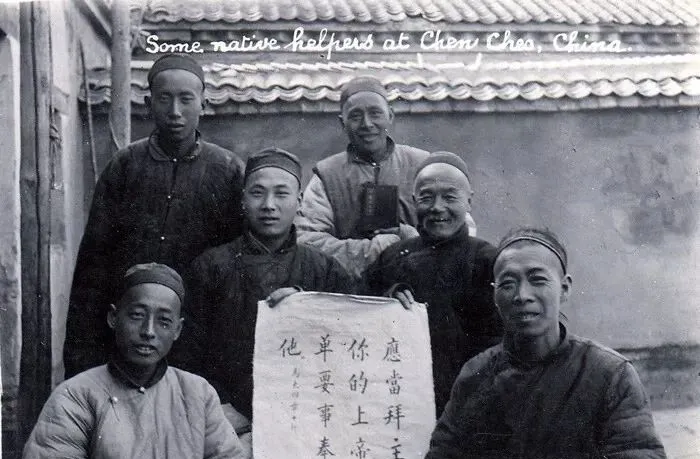 Some native helpers at Chen Cheo, China.
應當拜主
你的上帝
單要事奉
他
馬太四章十